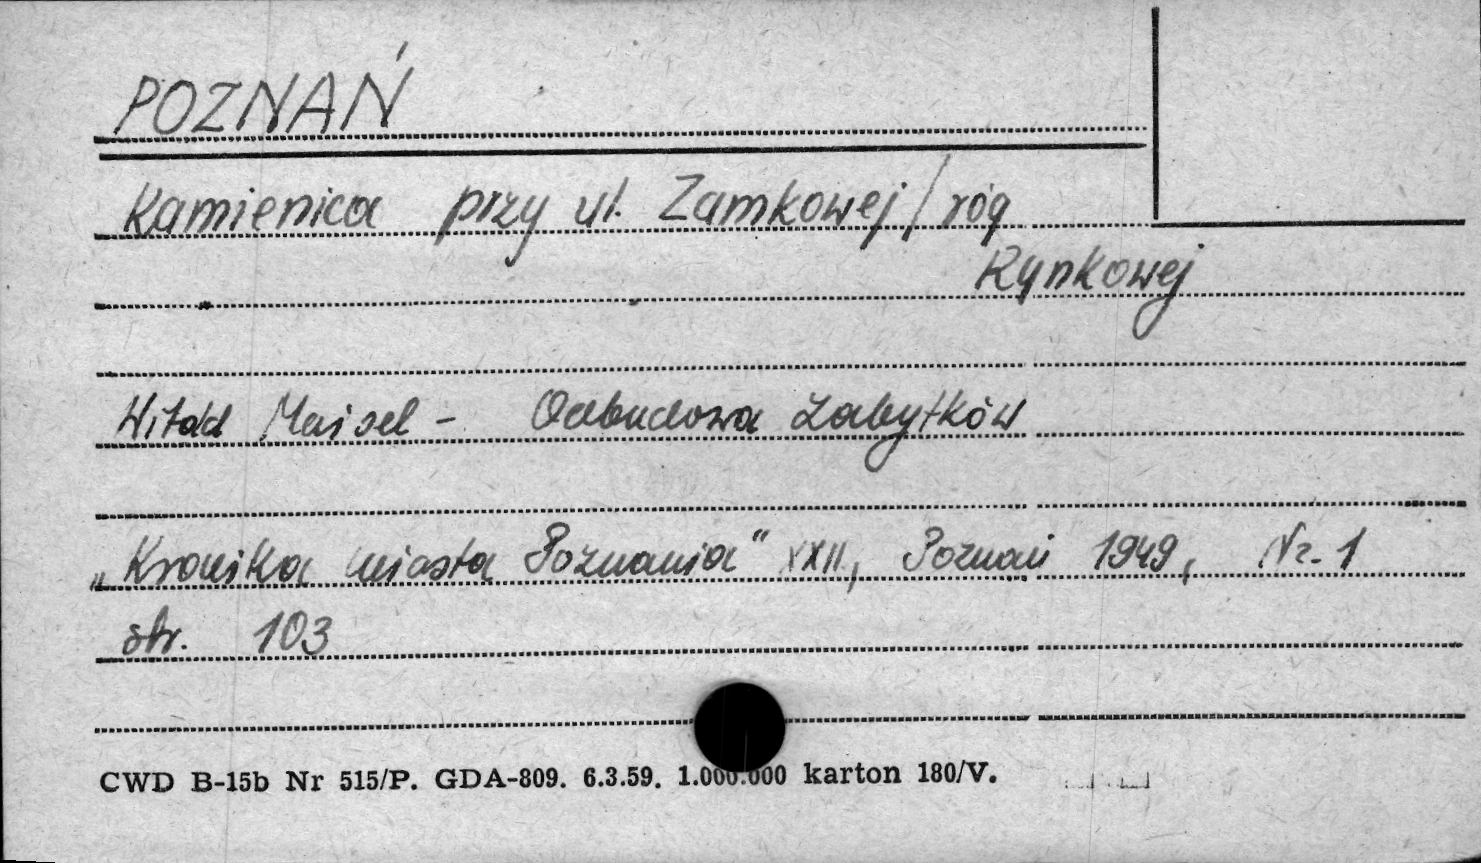 POZNAŃ
Kamienica przy ul. Zamkowej / róg
Rynkowej
Witold Maisel - Odbudowa zabytków
„Kronika miasta Poznania" XXII, Poznań 1949, Nr. 1
str. 103
CWD B-15b Nr 515/P. GDA-809. 6.3.59. 1.000.000 karton 180/V.